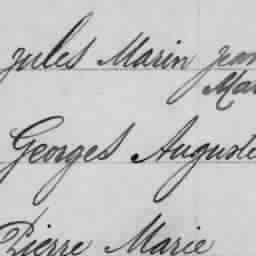 Jules Marin Jean
Mar
Georges Auguste
Pierre Marie